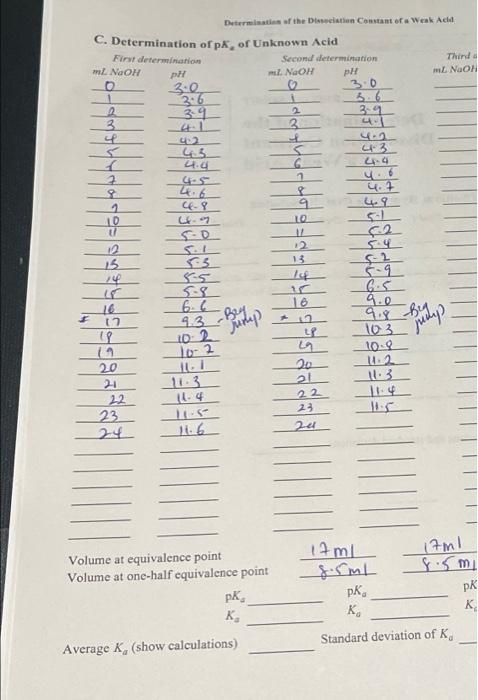 Determination of the Dissociation Constant of a Weak Acid
C. Determination of pKₐ of Unknown Acid
First determination Second determination Third
mL NaOH pH mL NaOH pH mL NaOH
0 3.0 0 3.0
1 3.6 1 3.6
2 3.9 2 3.9
3 4.1 3 4.1
4 4.2 4 4.2
5 4.3 5 4.3
6 4.4 6 4.4
7 4.5 7 4.6
8 4.6 8 4.7
9 4.8 9 4.9
10 4.9 10 5.1
11 5.0 11 5.2
12 5.1 12 5.4
13 5.3 13 5.2
14 5.5 14 5.9
15 5.8 15 6.5
16 6.6 16 9.0
17 9.3 - Big jump) * 17 9.8 - Big jump)
18 10.2 18 10.3
19 10-2 19 10.8
20 11.1 20 11.2
21 11.3 21 11.3
22 11.4 22 11.4
23 11.5 23 11.5
24 11.6 24
Volume at equivalence point 17ml 17ml
Volume at one-half equivalence point 8.5ml 8.5m
pKₐ pKₐ pK
Kₐ Kₐ K
Average Kₐ (show calculations) Standard deviation of Kₐ